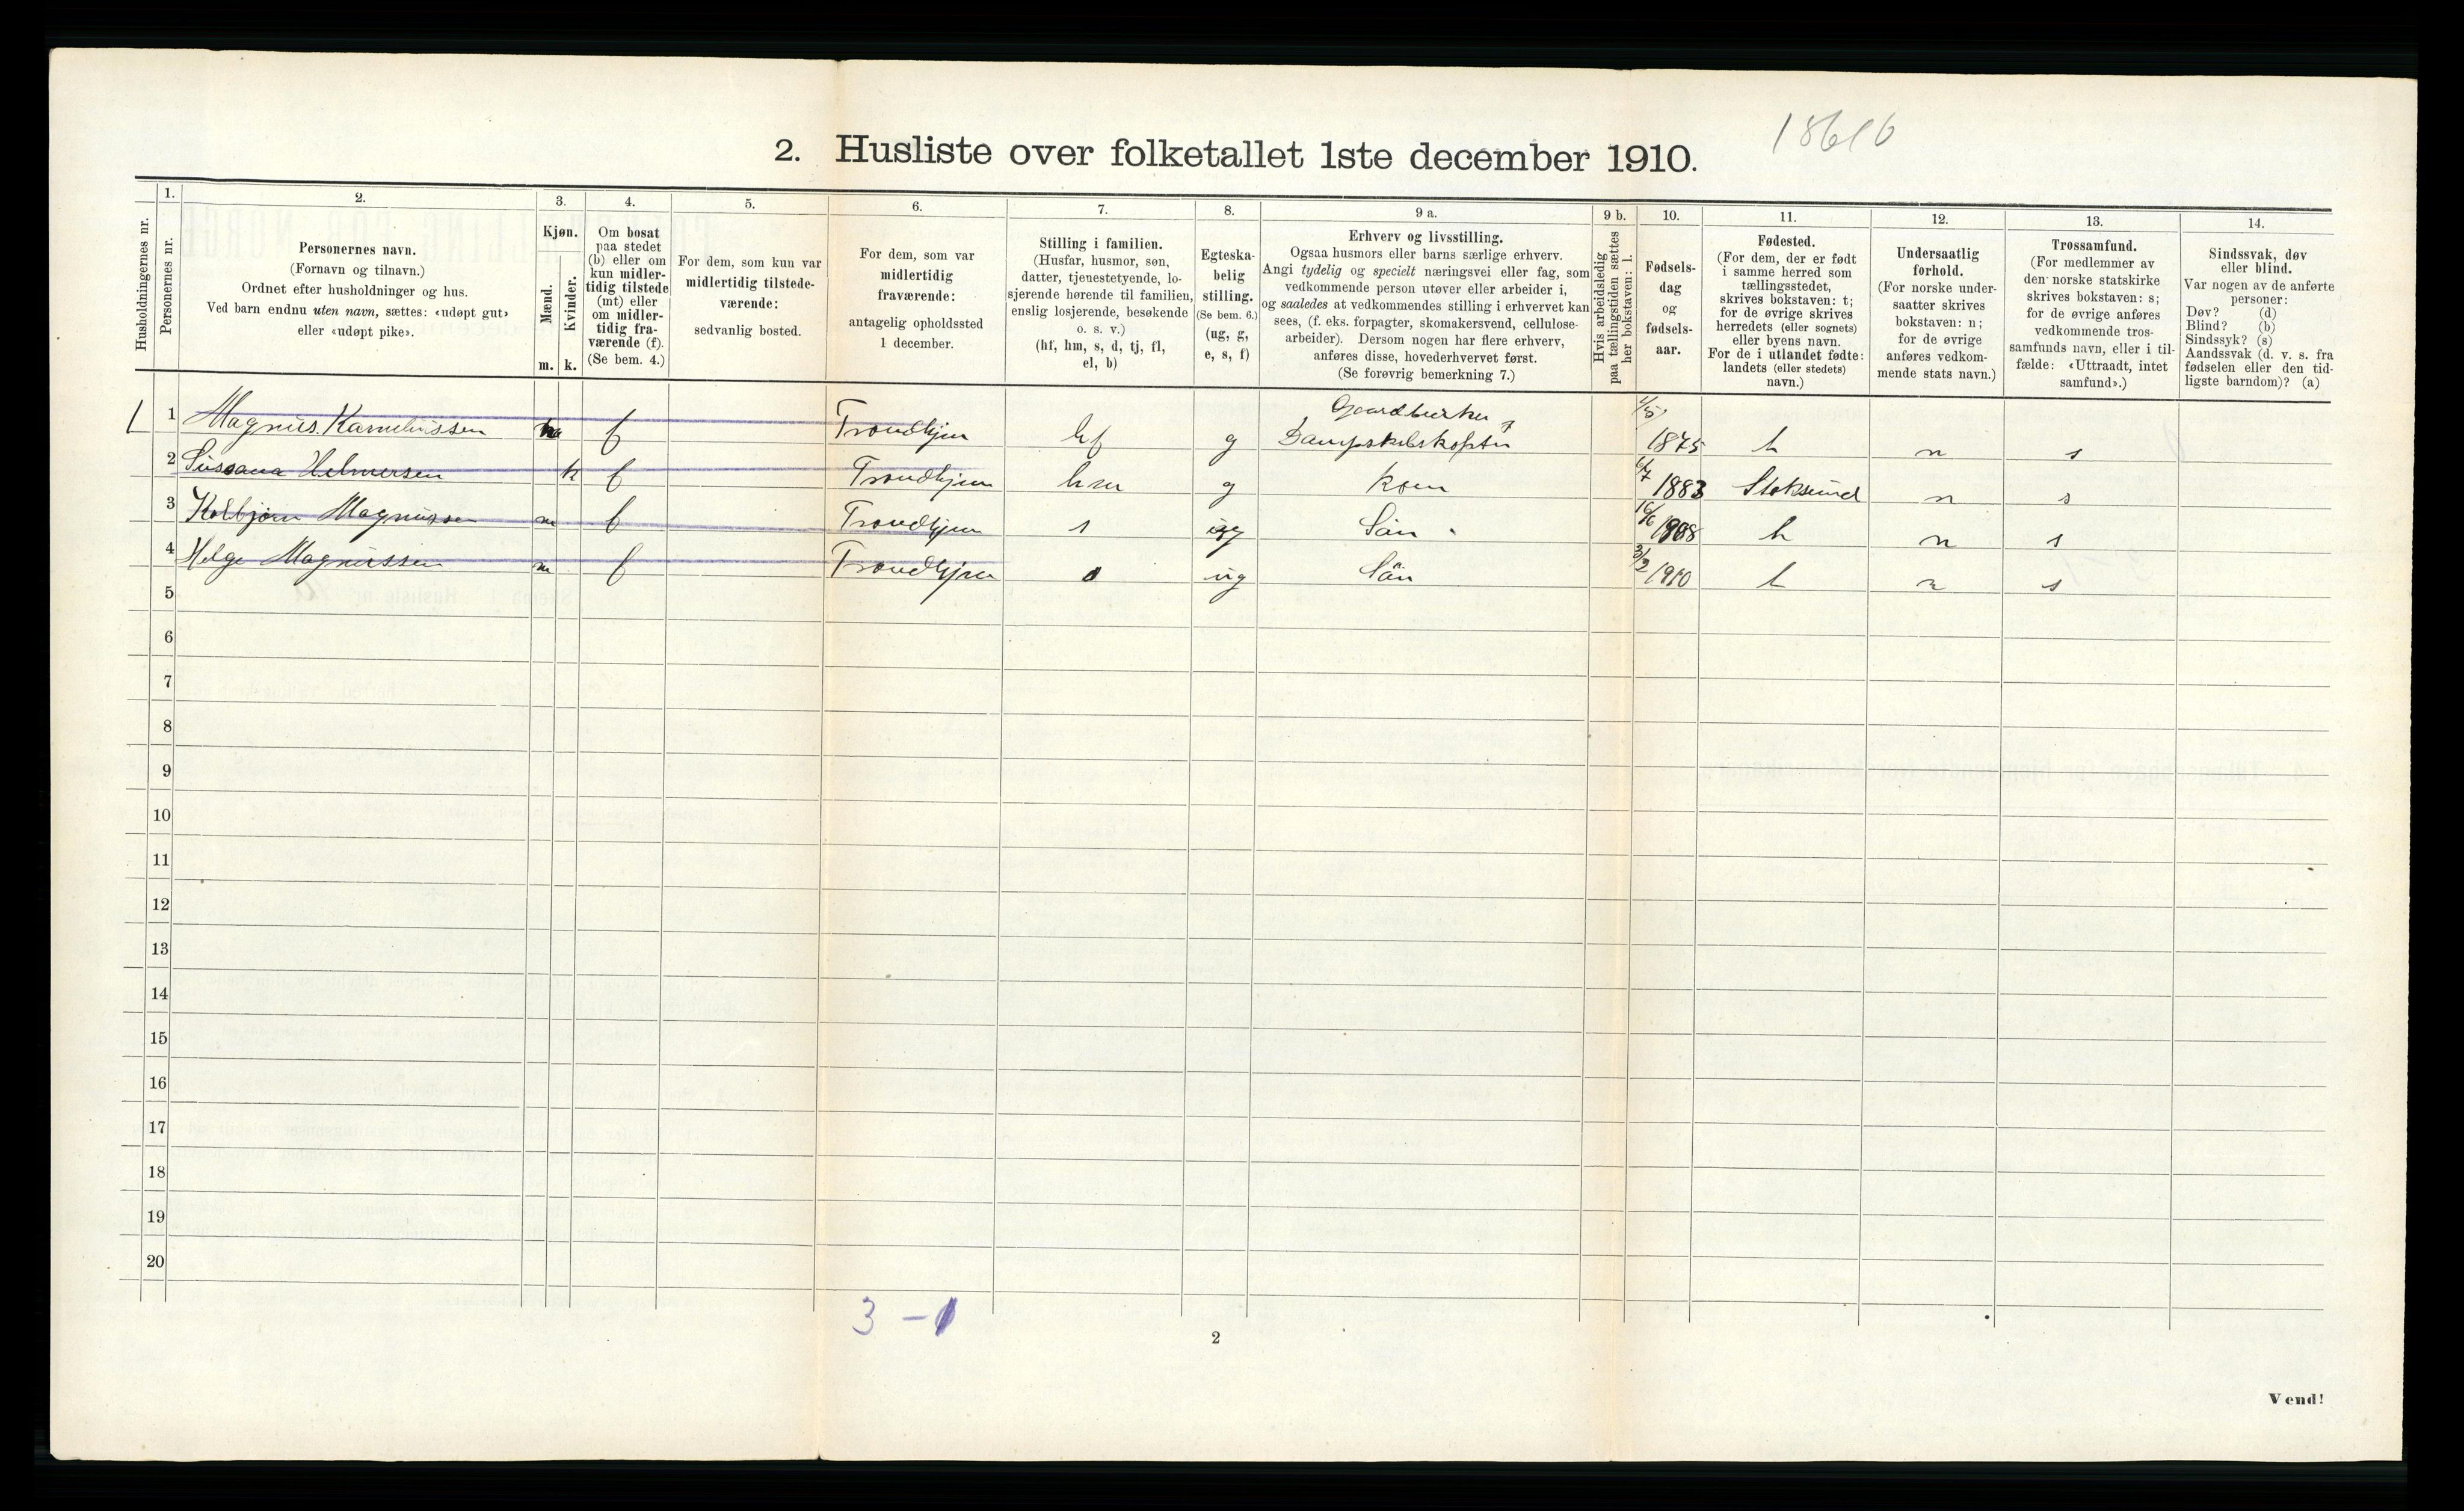 18610
2. Husliste over folketallet 1ste december 1910.
Husholdningernes nr.
1.
Personernes nr.
2.
Personernes navn.
(Fornavn og tilnavn.)
Ordnet efter husholdninger og hus.
Ved barn endnu uten navn, sættes: «udøpt gut»
eller «udøpt pike».
3.
Kjøn.
Mænd.
Kvinder.
m. k.
4.
Om bosat
paa stedet
(b) eller om
kun midler-
tidig tilstede
(mt) eller
om midler-
tidig fra-
værende (f).
(Se bem. 4.)
5.
For dem, som kun var
midlertidig tilstede-
værende:
sedvanlig bosted.
6.
For dem, som var
midlertidig
fraværende:
antagelig opholdssted
1 december.
7.
Stilling i familien.
(Husfar, husmor, søn,
datter, tjenestetyende, lo-
sjerende hørende til familien,
enslig losjerende, besøkende
o. s. v.)
(hf, hm, s, d, tj, fl,
el, b)
8.
Egteska-
belig
stilling.
(Se bem. 6.)
(ug, g,
e, s, f)
9 a.
Erhverv og livsstilling.
Ogsaa husmors eller barns særlige erhverv.
Angi tydelig og specielt næringsvei eller fag, som
vedkommende person utøver eller arbeider i,
og saaledes at vedkommendes stilling i erhvervet kan
sees, (f. eks. forpagter, skomakersvend, cellulose-
arbeider). Dersom nogen har flere erhverv,
anføres disse, hovederhvervet først.
(Se forøvrig bemerkning 7.)
9 b.
Hvis arbeidsledig
paa tællingstiden sættes
her bokstaven: l.
10.
Fødsels-
dag
og
fødsels-
aar.
11.
Fødested.
(For dem, der er født
i samme herred som
tællingsstedet,
skrives bokstaven: t;
for de øvrige skrives
herredets (eller sognets)
eller byens navn.
For de i utlandet fødte:
landets (eller stedets)
navn.)
12.
Undersaatlig
forhold.
(For norske under-
saatter skrives
bokstaven: n;
for de øvrige
anføres vedkom-
mende stats navn.)
13.
Trossamfund.
(For medlemmer av
den norske statskirke
skrives bokstaven: s;
for de øvrige anføres
vedkommende tros-
samfunds navn, eller i til-
fælde: «Uttraadt, intet
samfund».)
14.
Sindssvak, døv
eller blind.
Var nogen av de anførte
personer:
Døv? (d)
Blind? (b)
Sindssyk? (s)
Aandssvak (d. v. s. fra
fødselen eller den tid-
ligste barndom)? (a)
1 1 Magnus f Trondhjem hf g 1/5 1875 t n s
2 Susana Helmersen k f Trondhjem hm g Kone 6/7 1883 Stoksund n s
3 Kolbjørn Magnussen m f Trondhjem s ug Sön 16/6 1908 t n s
4 Helge Magnussen m f Trondhjem s ug Sön 3/2 1910 t n s
5
6
7
8
9
10
11
12
13
14
15
16
17
18
19
20
3 - 1
2
Vend!